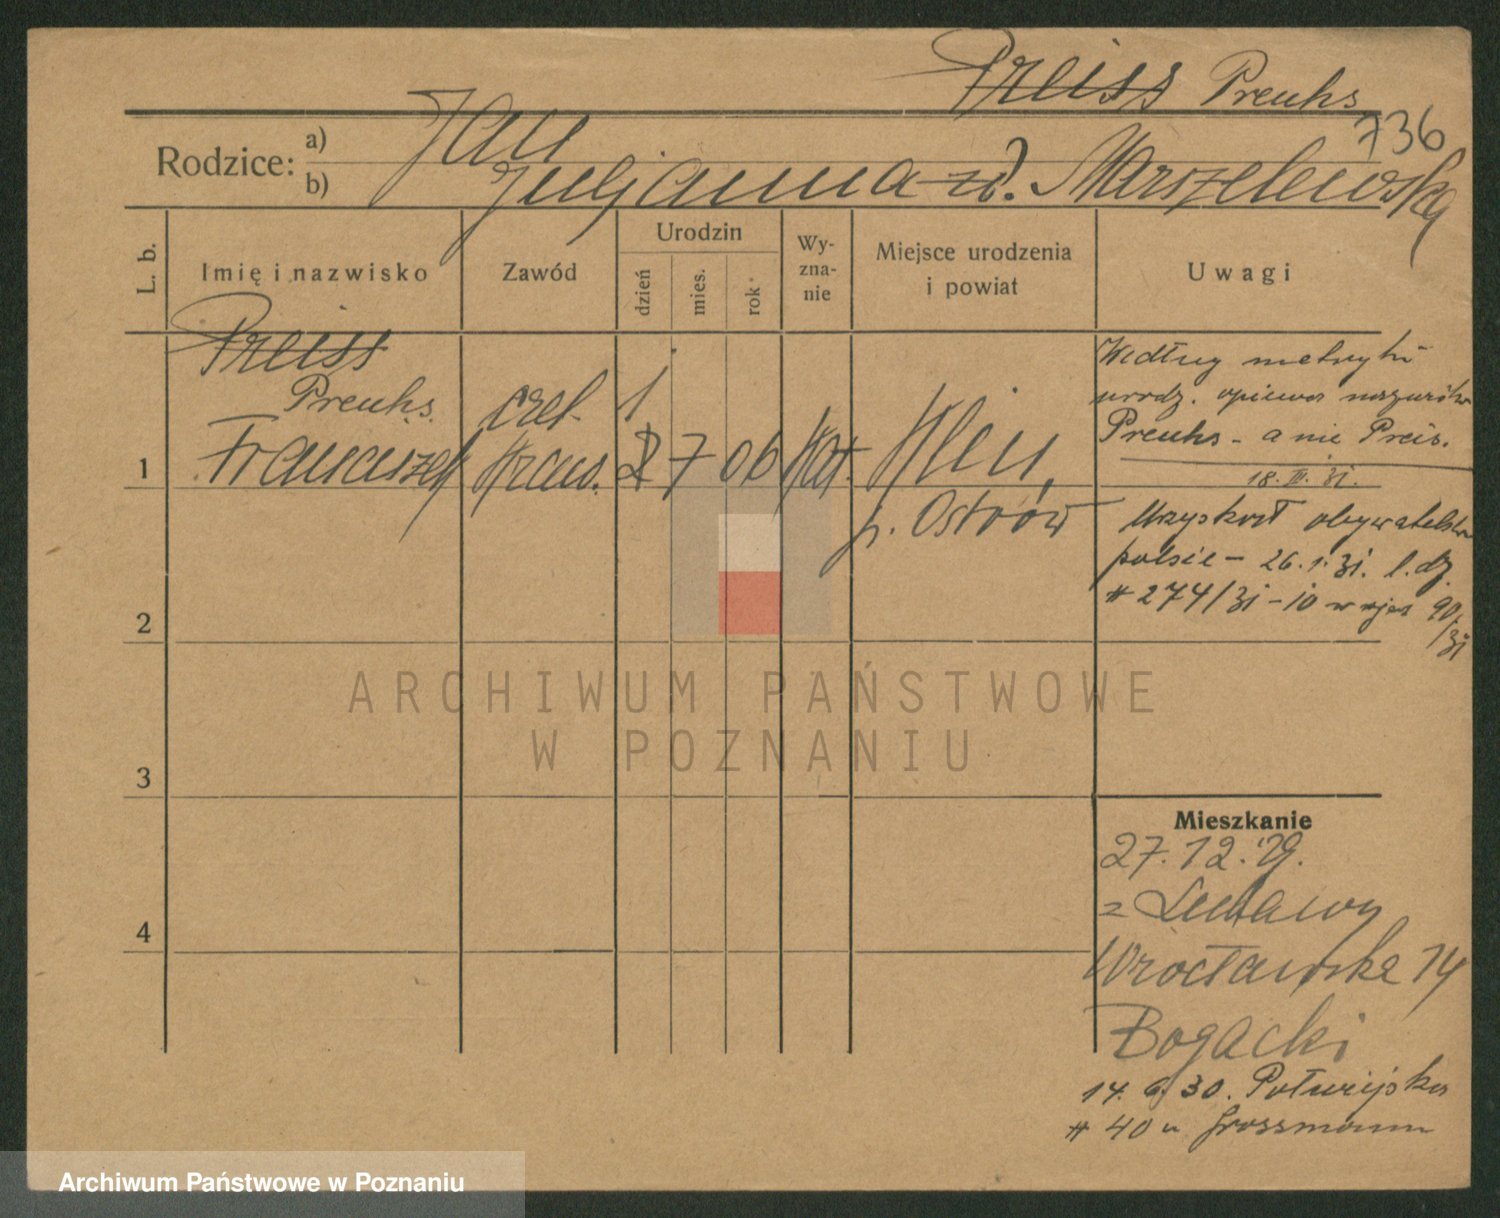 Preiss Preuhs
736
Rodzice: a) Jan
b) Juljanna z d. Marszelewska
L. b.
Imię i nazwisko
Zawód
Urodzin
dzień
mies.
rok
Wy-
zna-
nie
Miejsce urodzenia
i powiat
Uwagi
1
Preiss
Preuhs.
Franciszek
czel.
kraw.
1
2 7 06
kat.
p. Ostrów
Według metryki
urodz. opiewa
Preuhs - a nie Preis.
18. III. 31.
Uzyskał obywatelstwo
polskie - 26. 1. 31. l. dz.
# 274/31 - 10 90/
/31
2
3
4
Mieszkanie
27. 12. 29.
Wrocławska 14
Bogacki
14. 6. 30.
# 40 u Grossmann
ARCHIWUM PAŃSTWOWE
W POZNANIU
Archiwum Państwowe w Poznaniu